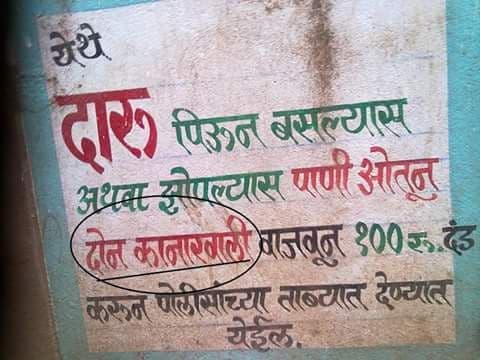 येथे
दारू पिऊन बसल्यास
अथवा झोपल्यास पाणी ओतून
दोन कानाखाली वाजवून १०० रू. दंड
करून पोलीसांच्या ताब्यात देण्यात
येईल.